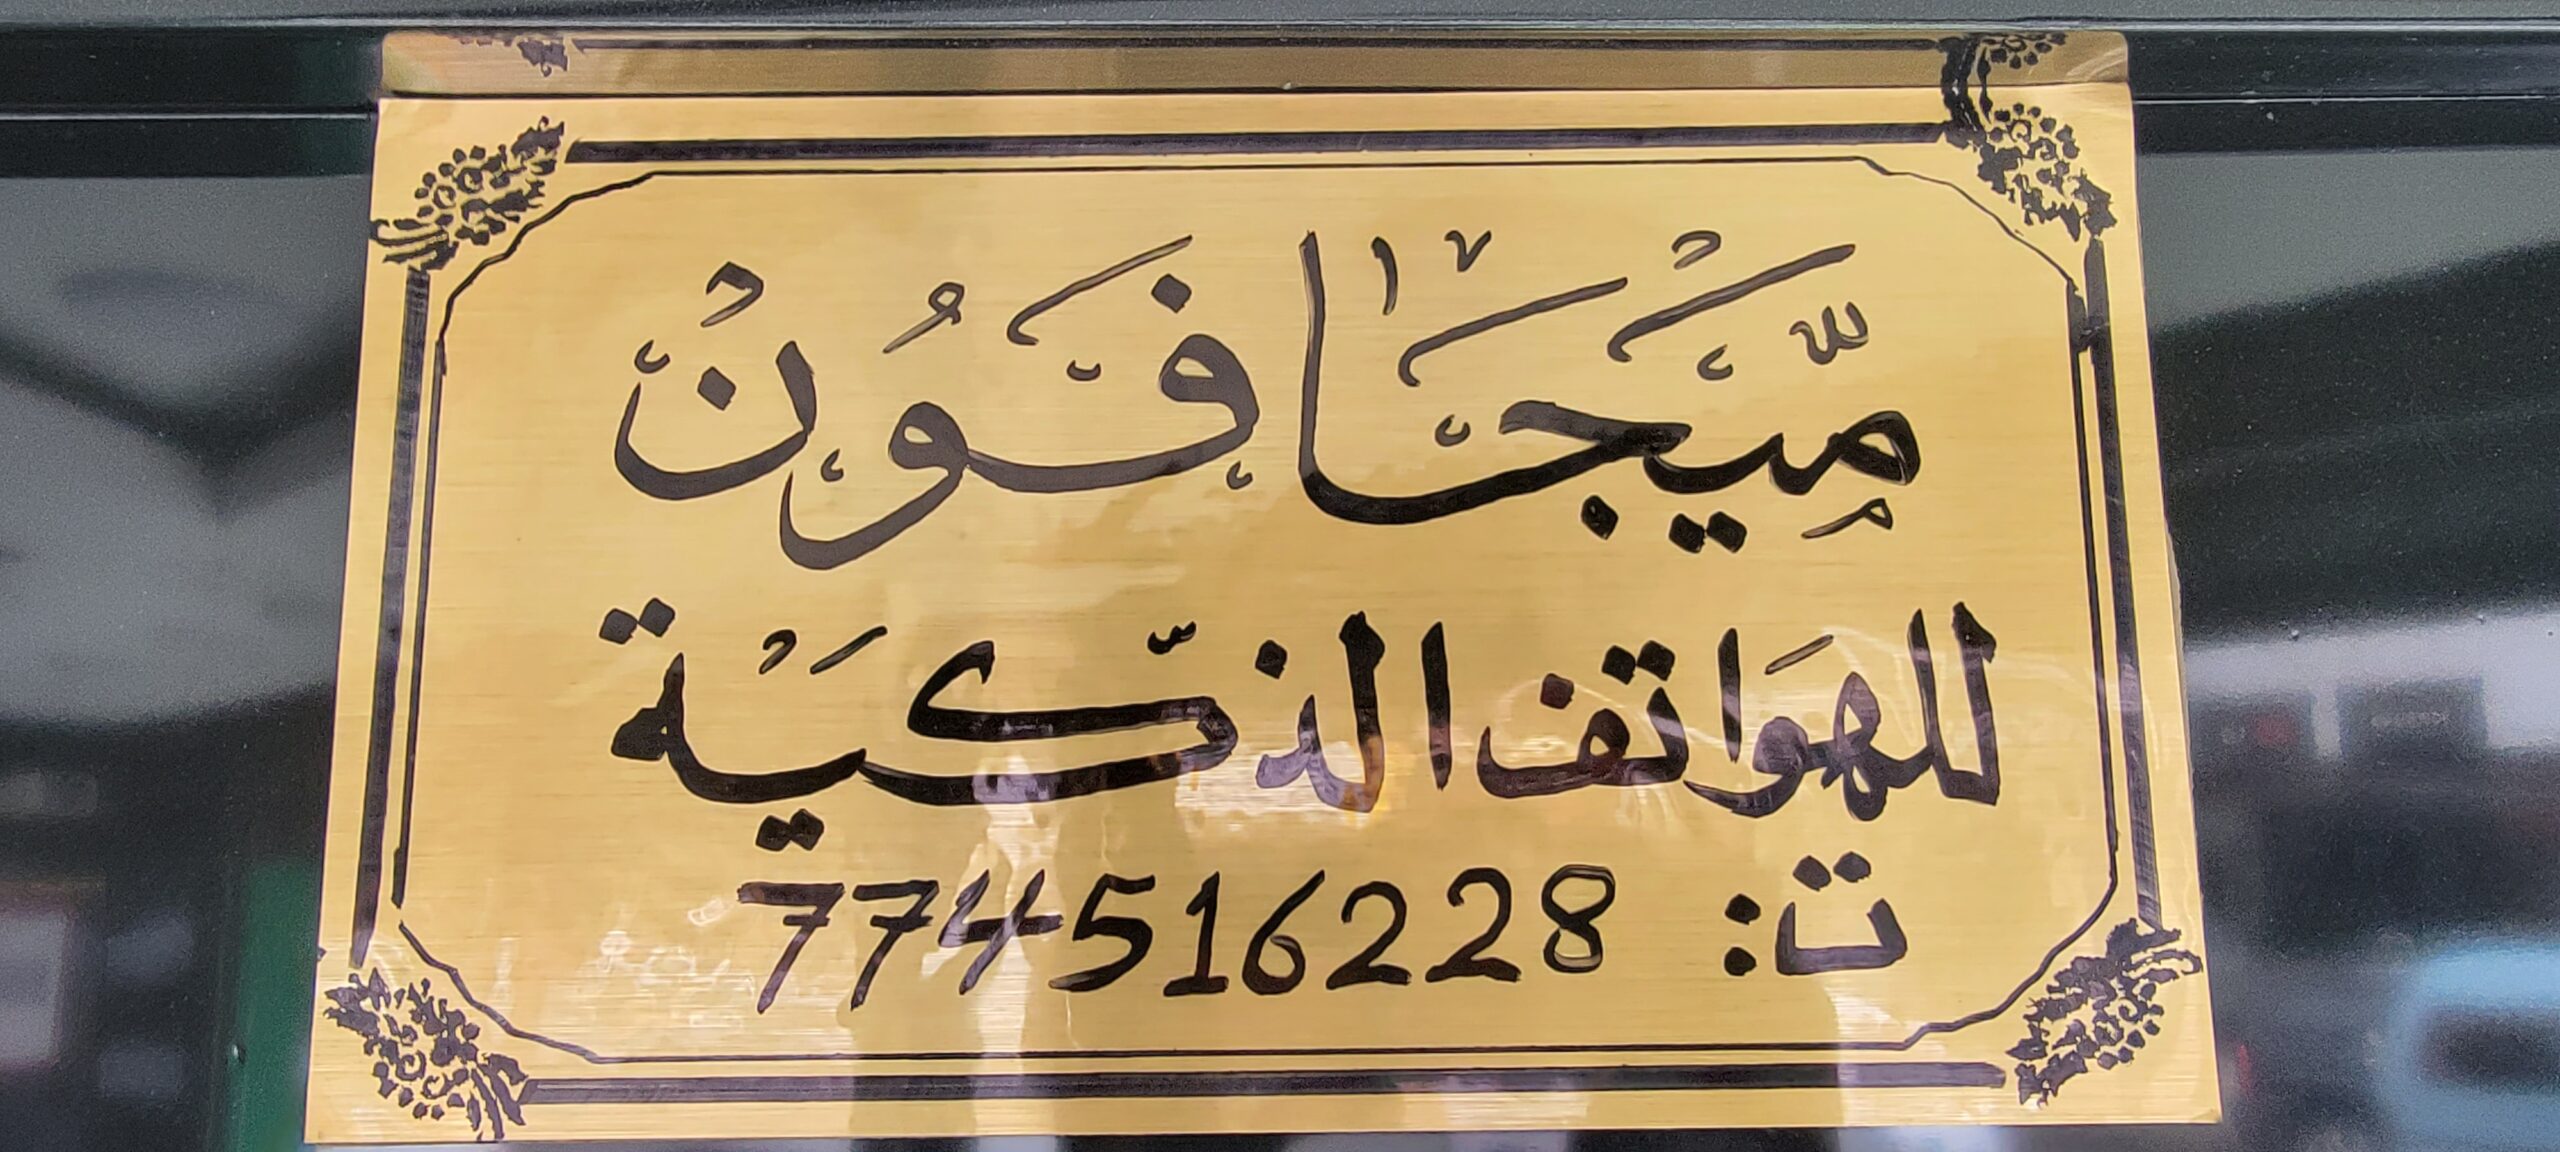 ميجافون
للهواتف الذكية
ت: 774516228